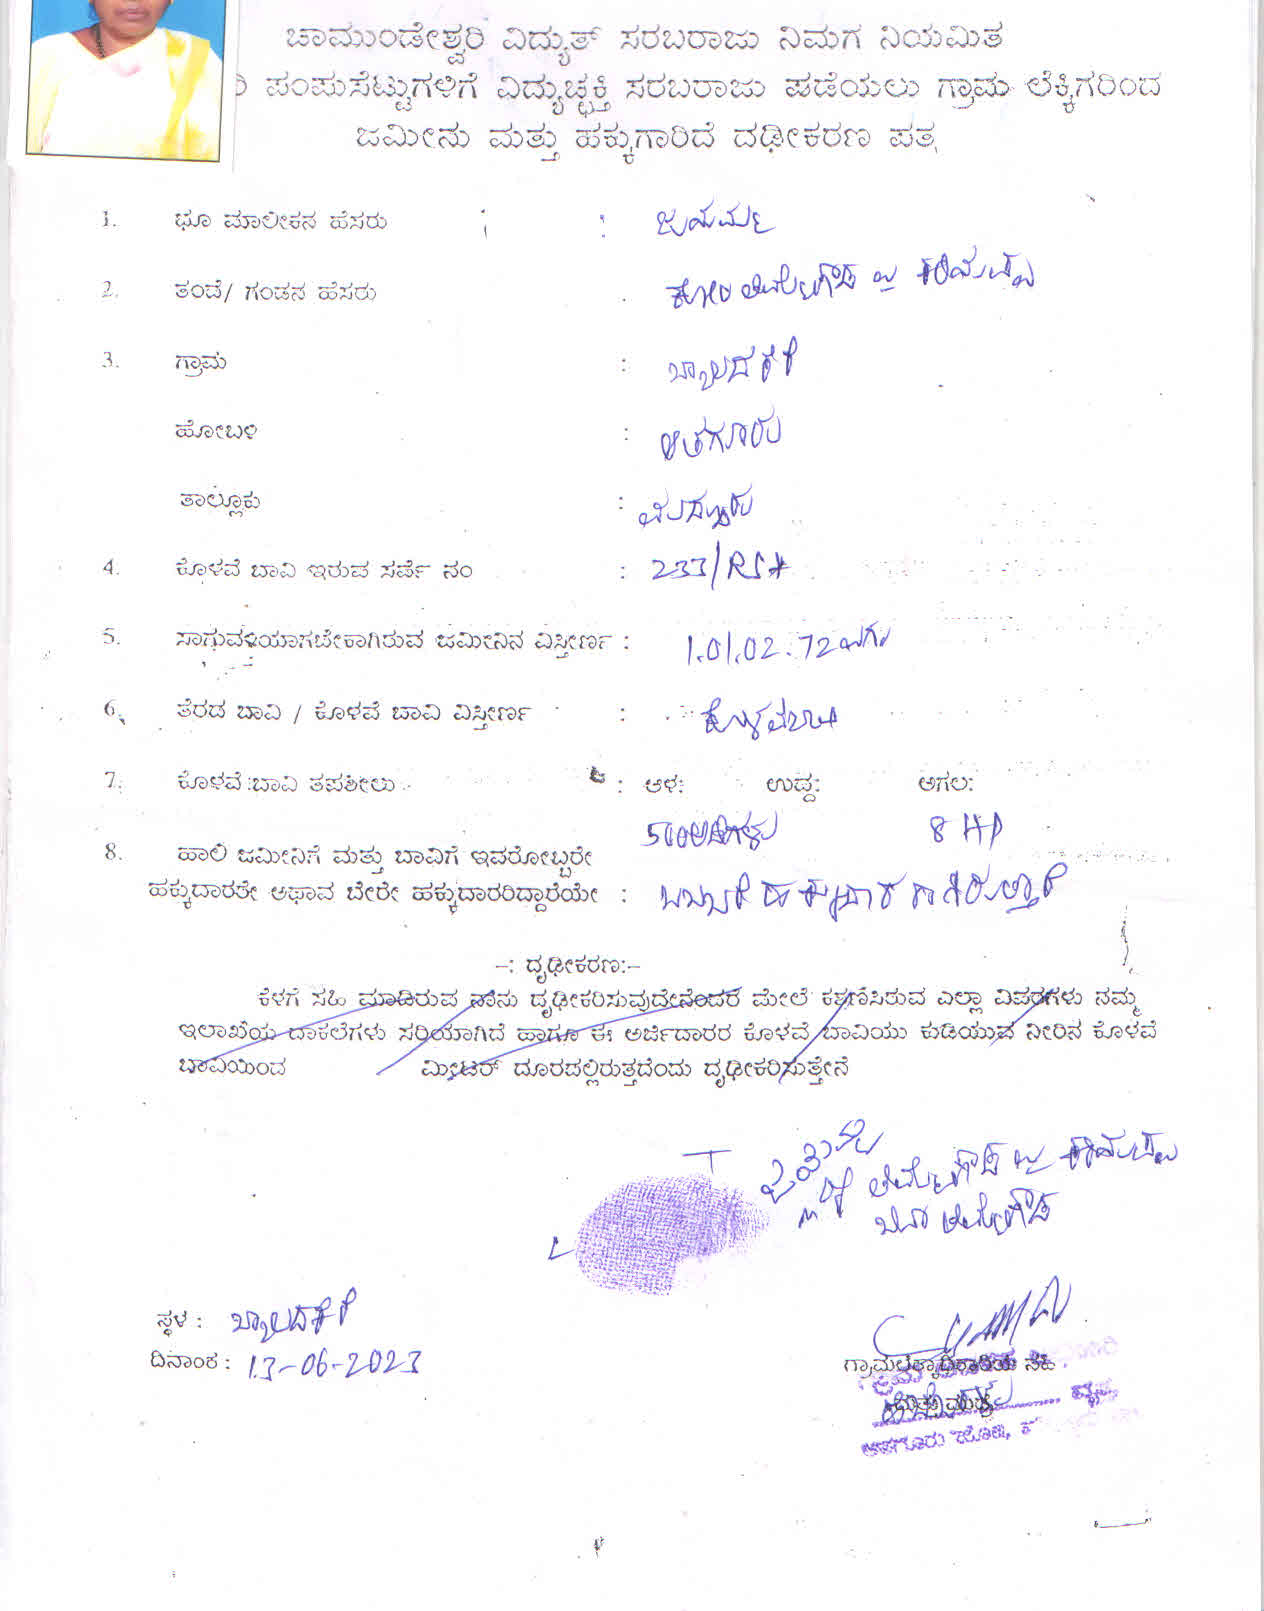 ಚಾಮುಂಡೇಶ್ವರಿ ವಿದ್ಯುತ್ ಸರಬರಾಜು ನಿಮಗ ನಿಯಮಿತ
ರಿ ಪಂಪುಸೆಟ್ಟುಗಳಿಗೆ ವಿದ್ಯುಚ್ಛಕ್ತಿ ಸರಬರಾಜು ಪಡೆಯಲು ಗ್ರಾಮ ಲೆಕ್ಕಿಗರಿಂದ
ಜಮೀನು ಮತ್ತು ಹಕ್ಕುಗಾರಿದೆ ದಢೀಕರಣ ಪತ್ರ
1. ಭೂ ಮಾಲೀಕನ ಹೆಸರು : ಜಯಮ್ಮ
2. ತಂದೆ/ ಗಂಡನ ಹೆಸರು . ಕೋಂ ತಿಮ್ಮೇಗೌಡ
3. ಗ್ರಾಮ : ಬ್ಯಾಲದಕೆರೆ
ಹೋಬಳಿ : ಆತಗೂರು
ತಾಲ್ಲೂಕು : ಮದ್ದೂರು
4. ಕೊಳವೆ ಬಾವಿ ಇರುವ ಸರ್ವೆ ನಂ : 233/
5. ಸಾಗುವಳಿಯಾಗಬೇಕಾಗಿರುವ ಜಮೀನಿನ ವಿಸ್ತೀರ್ಣ : 1.01.02.72
6. ತೆರದ ಬಾವಿ / ಕೊಳವೆ ಬಾವಿ ವಿಸ್ತೀರ್ಣ : ಕೊಳವೆಬಾವಿ
7. ಕೊಳವೆ ಬಾವಿ ತಪಶೀಲು : ಆಳ: ಉದ್ದ: ಅಗಲ:
500ಅಡಿಗಳು 8 HP
8. ಹಾಲಿ ಜಮೀನಿಗೆ ಮತ್ತು ಬಾವಿಗೆ ಇವರೋಬ್ಬರೇ
ಹಕ್ಕುದಾರತೇ ಅಥಾವ ಬೇರೇ ಹಕ್ಕುದಾರರಿದ್ದಾರೆಯೇ : ಒಬ್ಬರೆ ಹಕ್ಕುದಾರರಾಗಿರುತ್ತಾರೆ
-: ದೃಢೀಕರಣ:-
ಕೆಳಗೆ ಸಹಿ ಮಾಡಿರುವ ನಾನು ದೃಢೀಕರಿಸುವುದೇನೆಂದರೆ ಮೇಲೆ ಕಾಣಿಸಿರುವ ಎಲ್ಲಾ ವಿವರಗಳು ನಮ್ಮ
ಇಲಾಖೆಯ ದಾಕಲೆಗಳು ಸರಿಯಾಗಿದೆ ಹಾಗೂ ಈ ಅರ್ಜಿದಾರರ ಕೊಳವೆ ಬಾವಿಯು ಕುಡಿಯುವ ನೀರಿನ ಕೊಳವೆ
ಬಾವಿಯಿಂದ ಮೀಟರ್ ದೂರದಲ್ಲಿರುತ್ತದೆಂದು ದೃಢೀಕರಿಸುತ್ತೇನೆ
ತಿಮ್ಮೇಗೌಡ
ಬಿನ್ ತಿಮ್ಮೇಗೌಡ
ಸ್ಥಳ : ಬ್ಯಾಲದಕೆರೆ
ದಿನಾಂಕ : 13-06-2023
ಗ್ರಾಮಲೆಕ್ಕಾಧಿಕಾರಿಯ ಸಹಿ
ಮತ್ತು ಮುದ್ರೆ
ಆತಗೂರು ಹೋಬಳಿ,